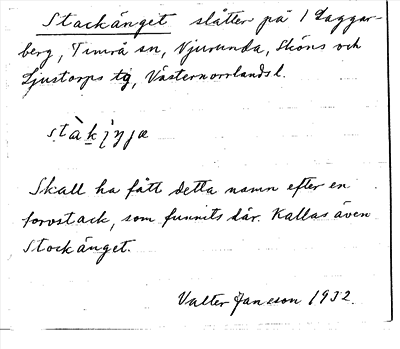 Stackänget slåtter på 1 Laggar-
berg, Timrå sn, Njurunda, Sköns och
Ljustorps tg, Västernorrlands l.
Skall ha fått detta namn efter en
torvstack, som funnits där. Kallas även
Stockänget.
Valter Jansson 1932.